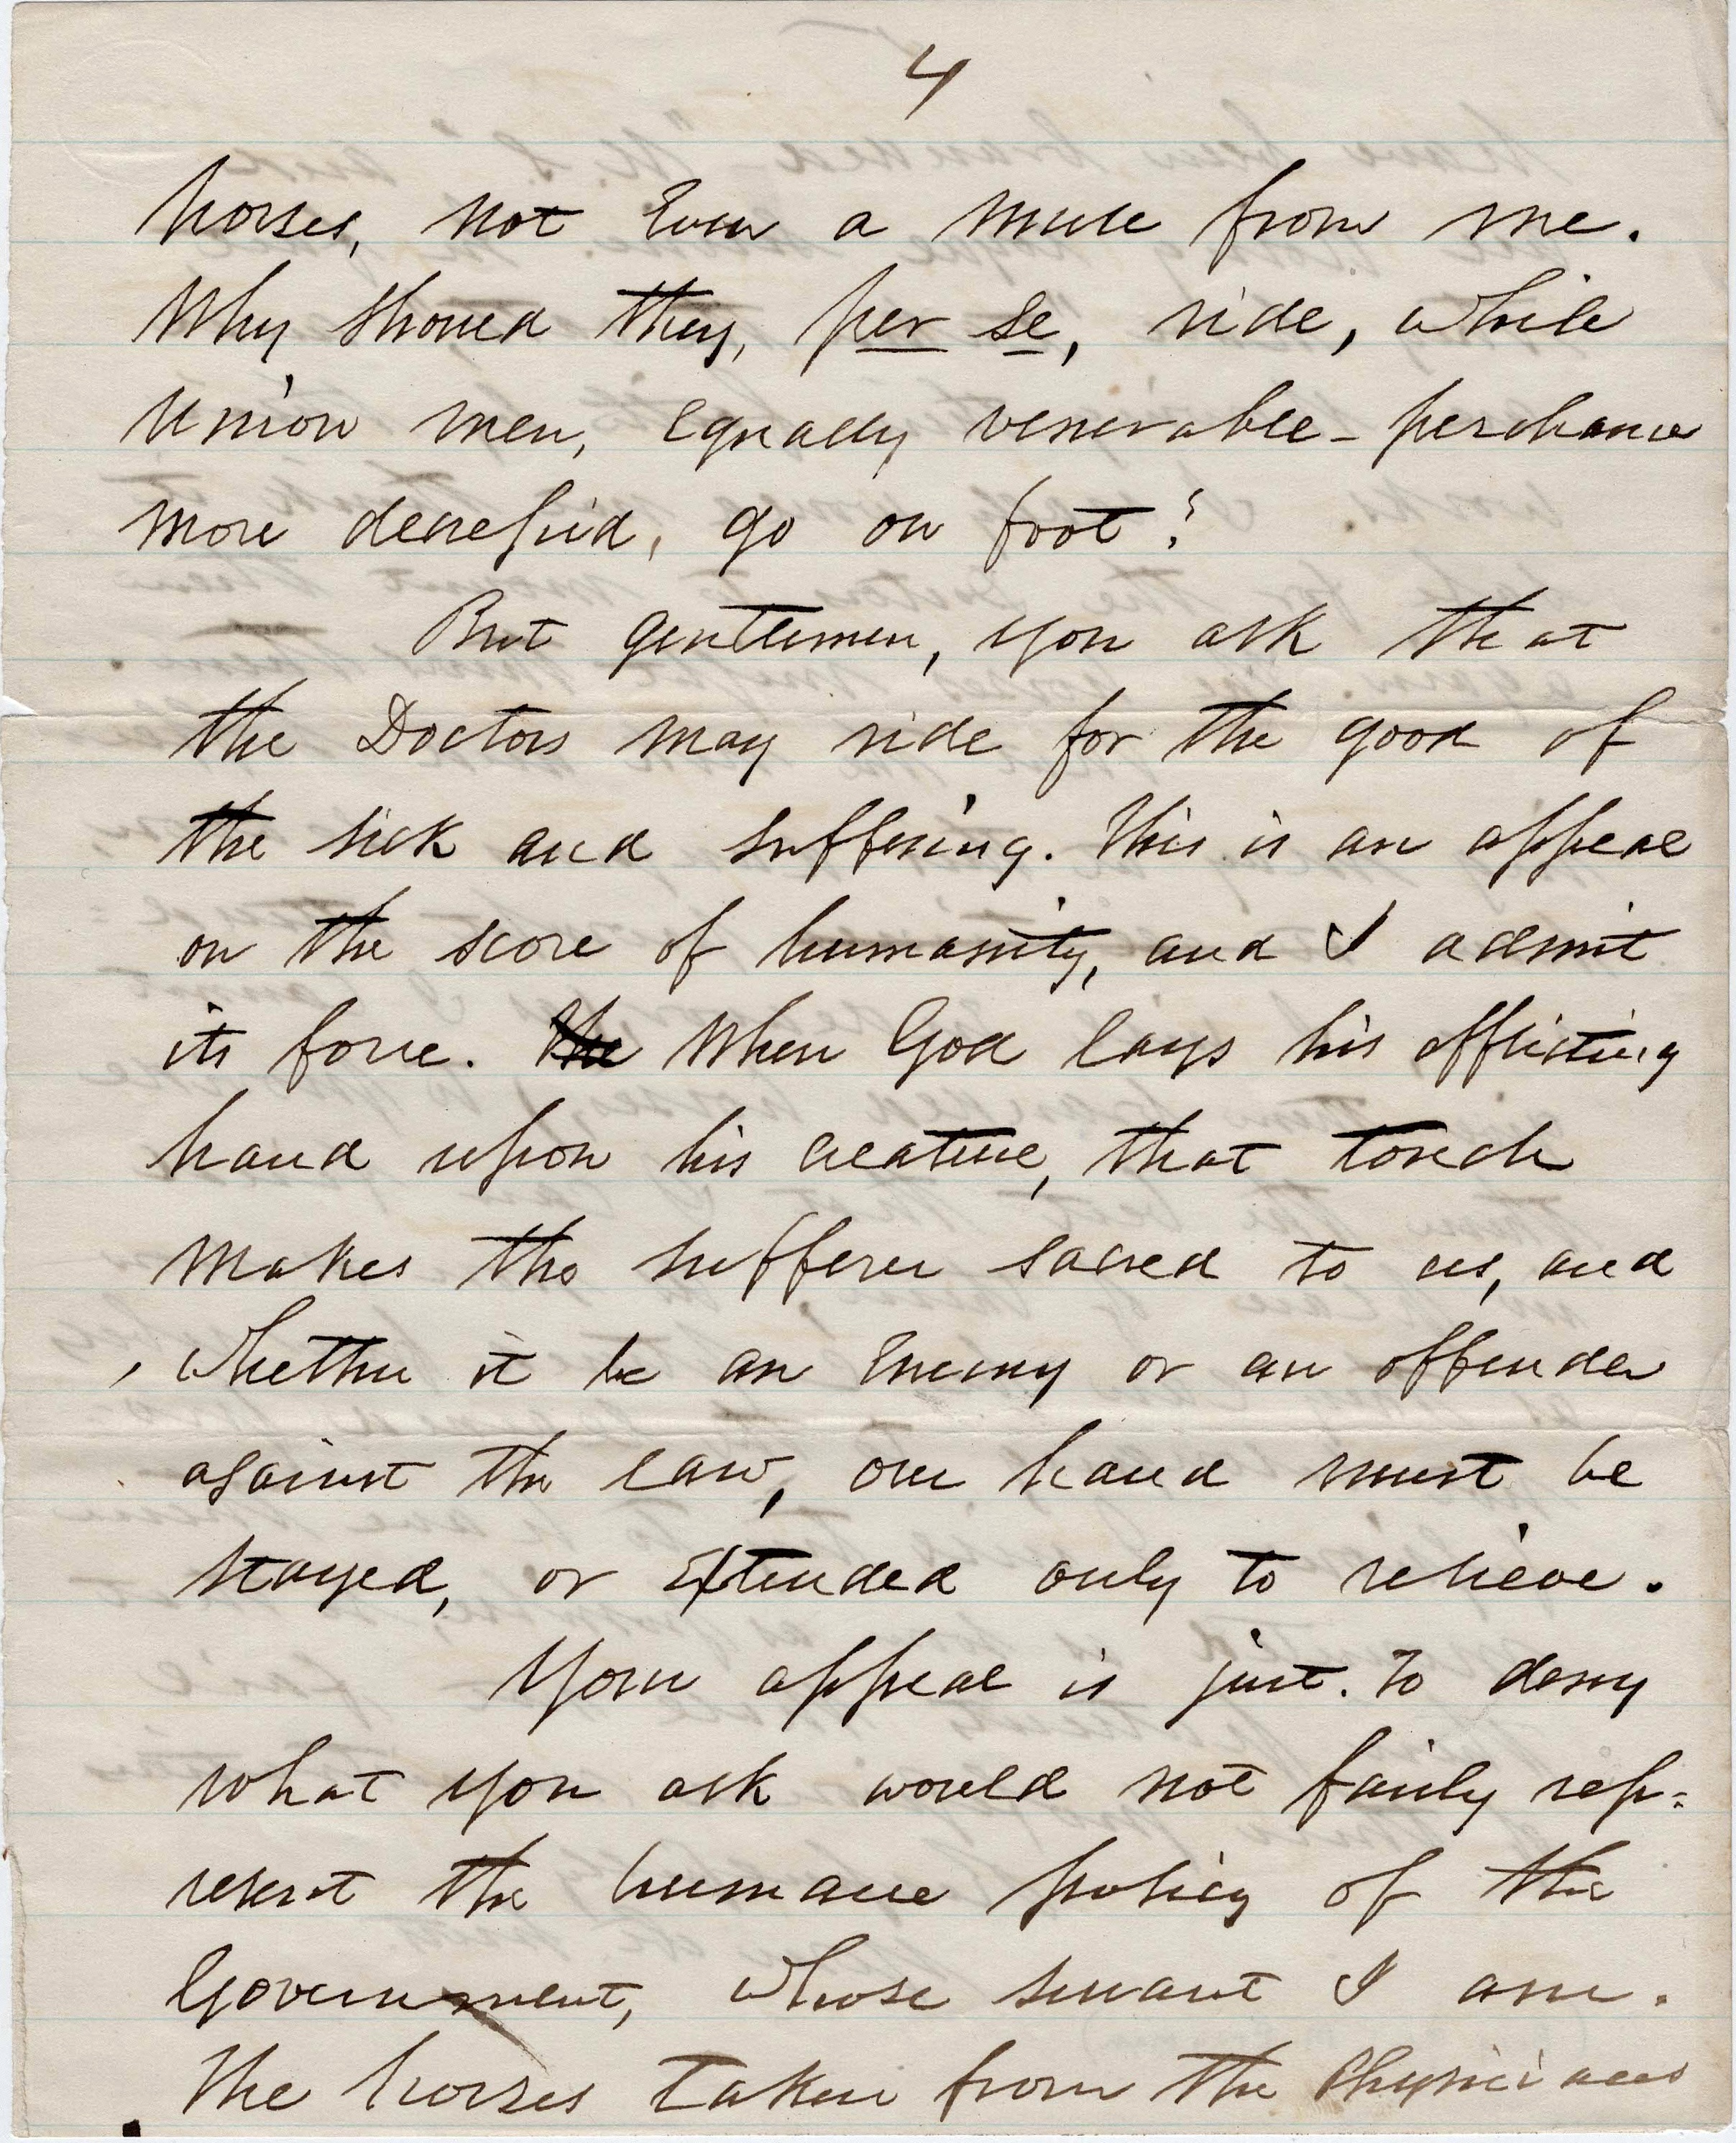 4
horses, not Even a mule from me.
Why should they, per se, ride, while
Union men, Equally venerable - perchance
more decrepid, go on foot?
But gentlemen, you ask that
the Doctors may ride for the good of
the sick and suffering. This is an appeal
on the score of humanity, and I admit
its force. When God lays his afflicting
hand upon his creature, that touch
makes the sufferer sacred to us, and
whether it be an Enemy or an offender
against the law, our hand must be
stayed, or Extended only to relieve.
Your appeal is just. To deny
what you ask would not fairly rep=
resent the humane policy of the
Government, whose servant I am.
The horses taken from the Physicians